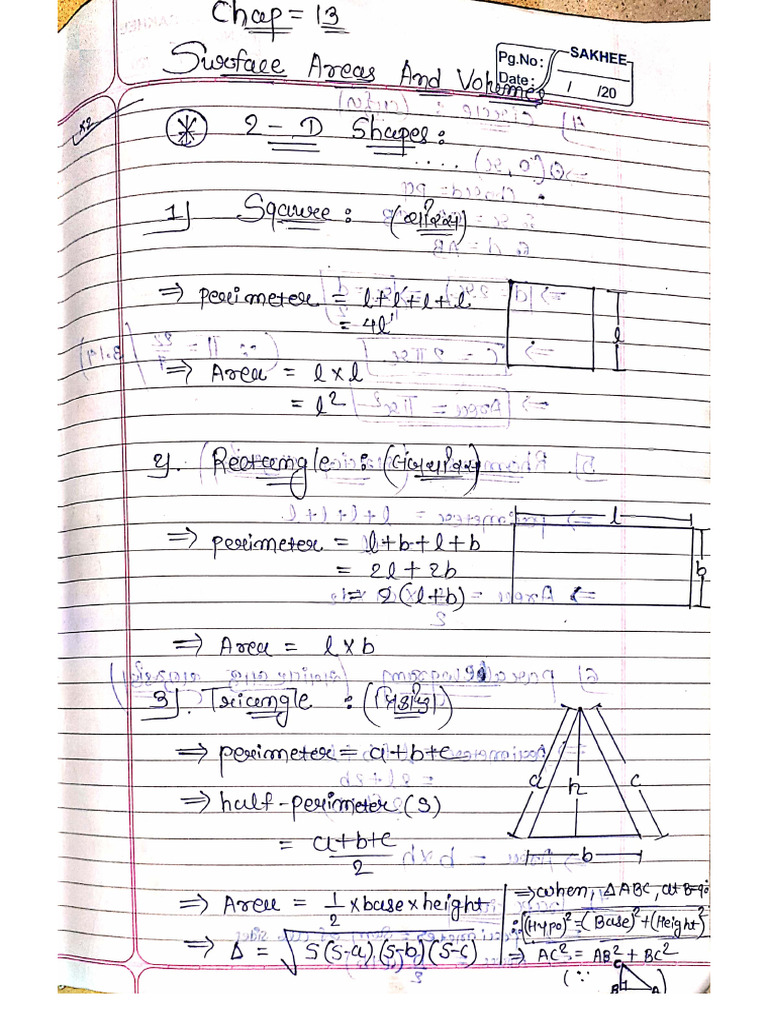 Chap = 13
Surface Areas And Volumes
Pg.No:
SAKHEE
Date: / /20
x2
2-D Shapes:
1) Sqauree: (ચોરસ)
⇒ perimeter = l+l+l+l
= 4l
⇒ Area = l x l
= l²
l
2). Rectangle: (લંબચોરસ)
l
⇒ perimeter = l+b+l+b
= 2l + 2b
= 2(l+b)
b
⇒ Area = l x b
3). Triangle : (ત્રિકોણ)
⇒ perimeter = a+b+c
a h c
⇒ half-perimeter (S)
= a+b+c / 2
b
⇒ Area = 1/2 x base x height
⇒ Δ = √S(S-a).(S-b)(S-c)
⇒ when, Δ ABC, at B=90°
∴ (Hypo)² = (Base)² + (Height)²
⇒ AC² = AB² + BC²
(∵
C
B A